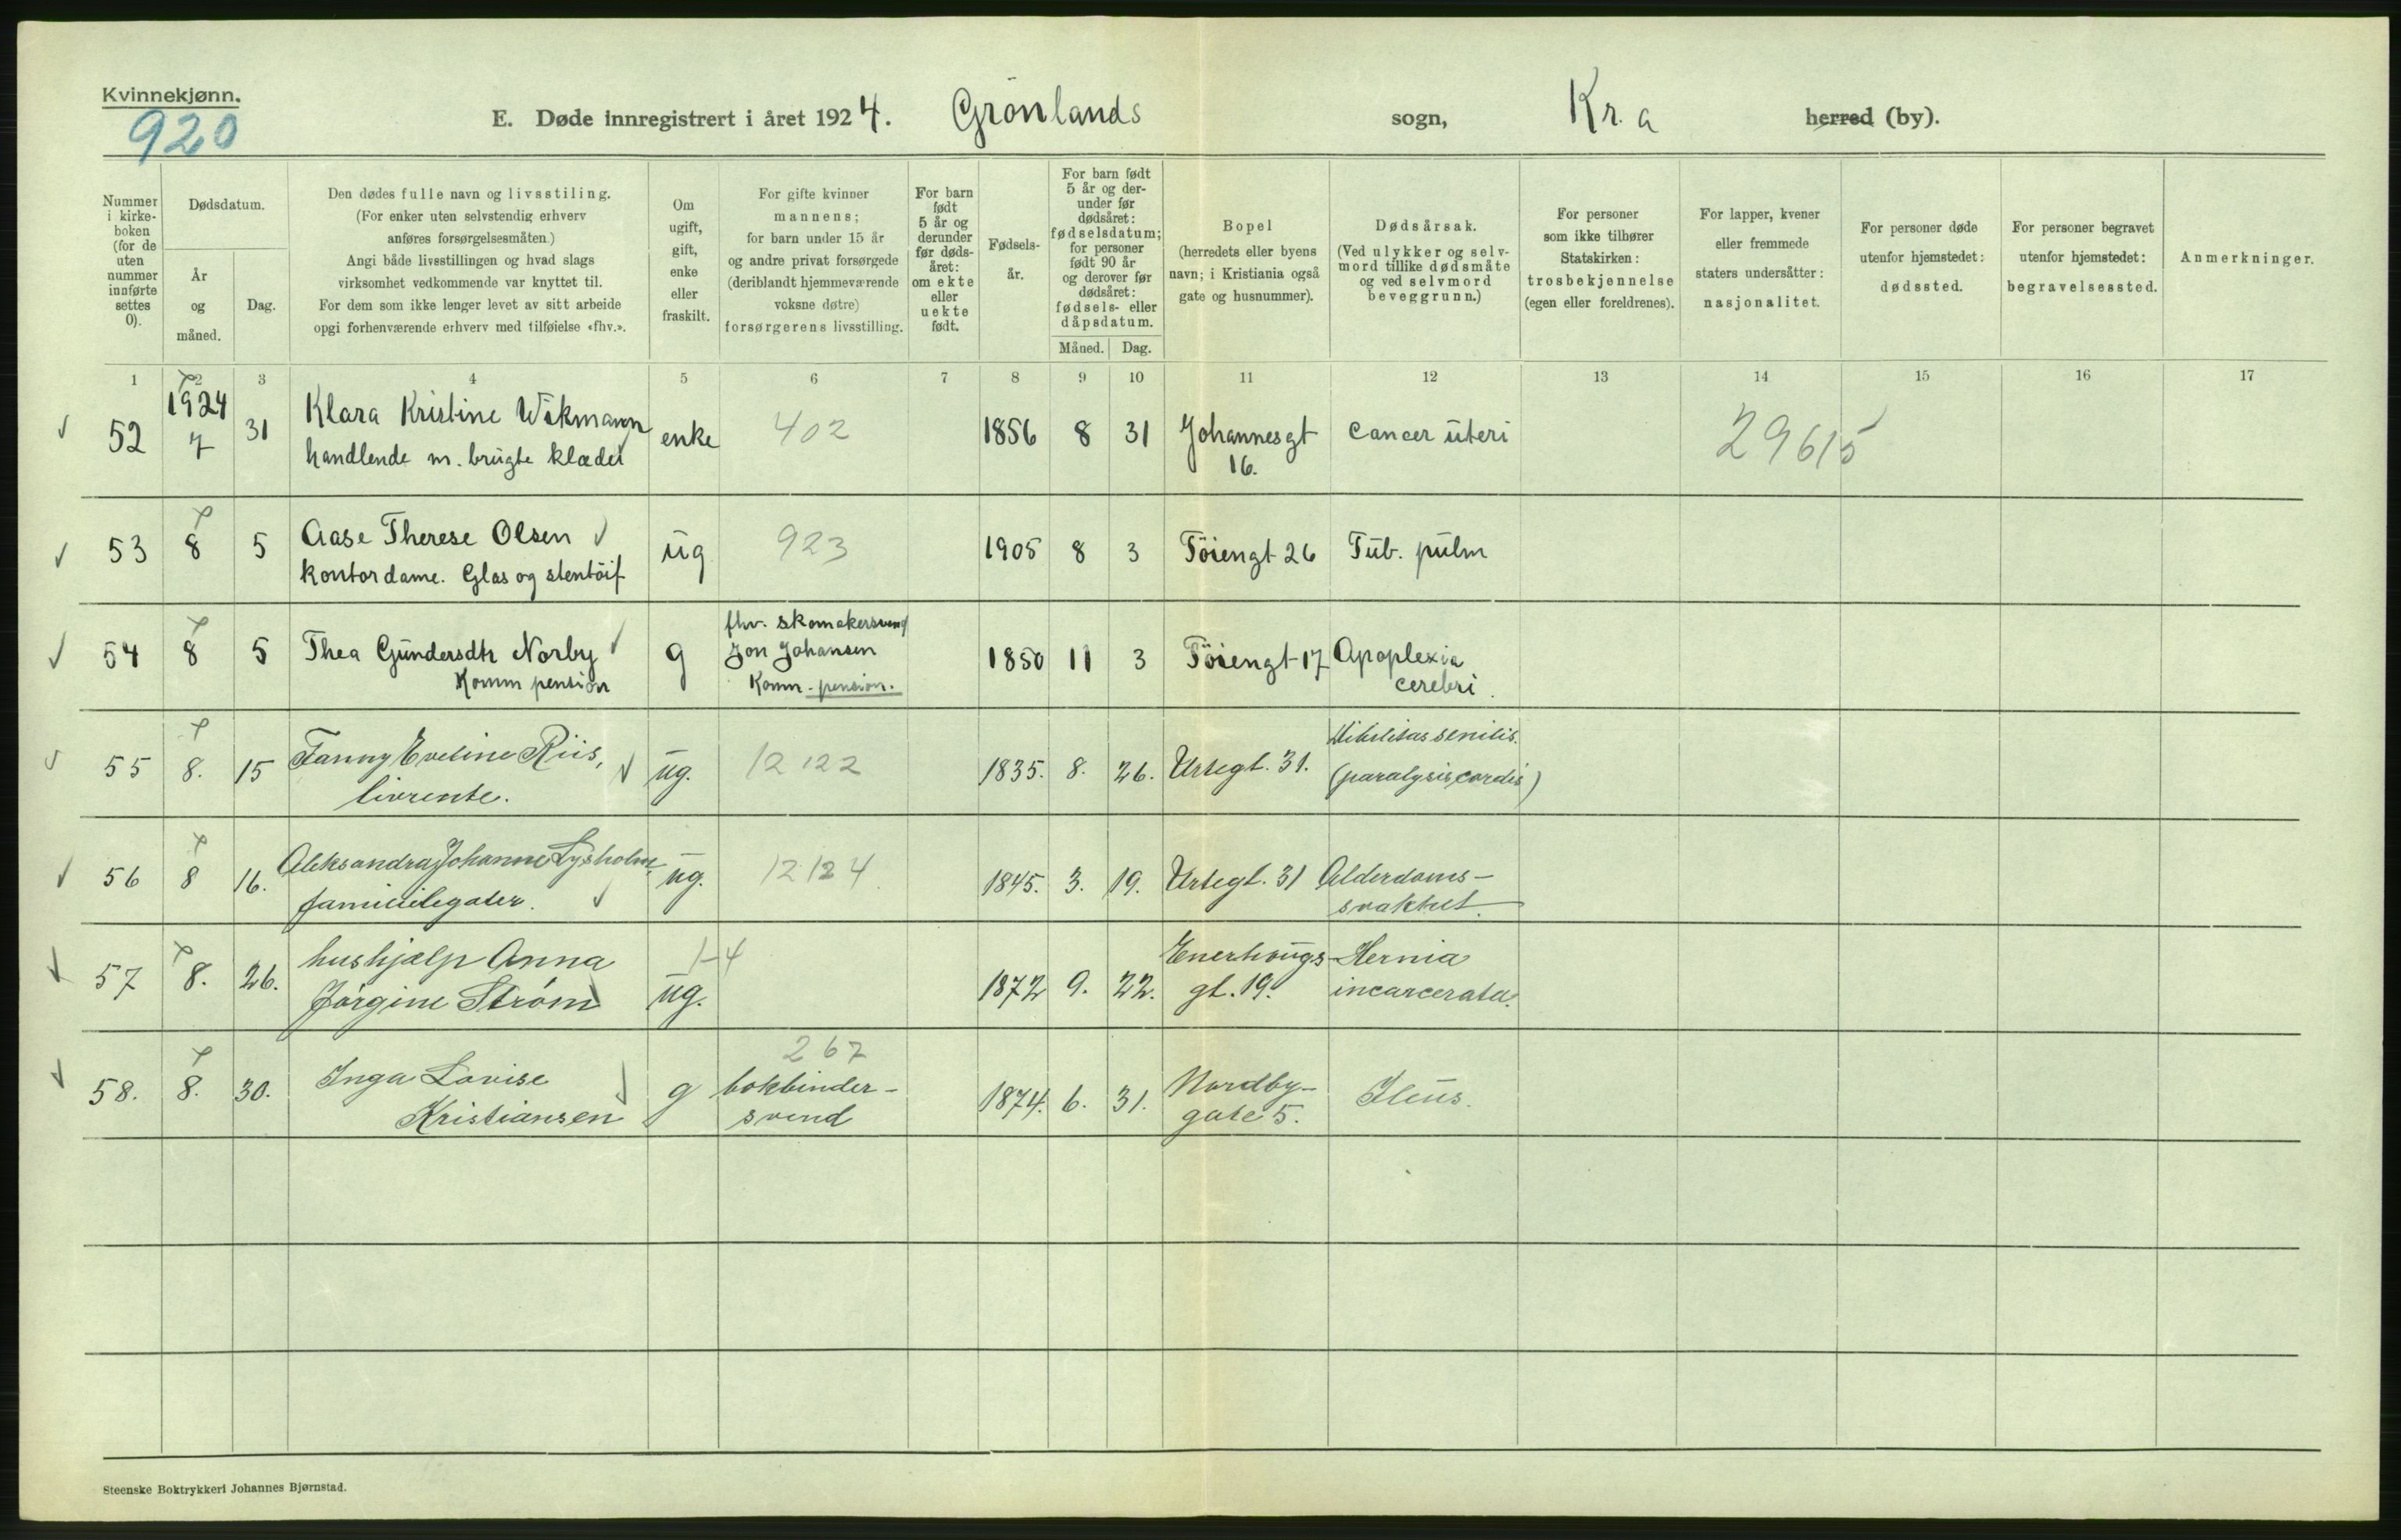 Kvinnekjønn.
920
E. Døde innregistrert i året 1924. Grönlands sogn, Kr. a herred (by).
Nummer i kirkeboken (for de uten nummer innførte settes 0).
Dødsdatum.
År og måned.
Dag.
Den dødes fulle navn og livsstiling.
(For enker uten selvstendig erhverv
anføres forsørgelsesmåten.)
Angi både livsstillingen og hvad slags
virksomhet vedkommende var knyttet til.
For dem som ikke lenger levet av sitt arbeide
opgi forhenværende erhverv med tilføielse «fhv.».
Om ugift, gift, enke eller fraskilt.
For gifte kvinner
mannens;
for barn under 15 år
og andre privat forsørgede
(deriblandt hjemmeværende
voksne døtre)
forsørgerens livsstilling.
For barn født 5 år og derunder før dødsåret: om ekte eller uekte født.
Fødselsår.
For barn født 5 år og derunder før dødsåret: fødselsdatum; for personer født 90 år og derover før dødsåret: fødsels- eller dåpsdatum.
Måned. Dag.
Bopel
(herredets eller byens
navn; i Kristiania også
gate og husnummer).
Dødsårsak.
(Ved ulykker og selvmord tillike dødsmåte og ved selvmord beveggrunn.)
For personer
som ikke tilhører
Statskirken:
trosbekjennelse
(egen eller foreldrenes).
For lapper, kvener
eller fremmede
staters undersåtter:
nasjonalitet.
For personer døde
utenfor hjemstedet:
dødssted.
For personer begravet
utenfor hjemstedet:
begravelsessted.
Anmerkninger.
1 2 3 4 5 6 7 8 9 10 11 12 13 14 15 16 17
52 1924 7 31 Klara Kristine Wikmann
handlende m. brugte klæder enke 402 1856 8 31 Johannesgt
16. Cancer uteri 29615
53 8 5 Aase Therese Olsen
kontordame. Glas og stentöif ug 923 1905 8 3 Töiengt 26 Tub. pulm
54 8 5 Thea Gundersdtr Norby
Komm pension g fhv. skomakersvend
Jon Johansen
Komm. pension. 1850 11 3 Töiengt 17 Apoplexia
cerebri.
55 8. 15 Fanny Eveline Riis,
livrente. ug. 12122 1835. 8. 26. Urtegt. 31. Debilitas senilis.
(paralysis cordis)
56 8 16. Aleksandra Johanne Lysholm,
familielegater. ug. 12124 1845. 3. 19. Urtegt. 31 Alderdoms-
svakhet.
57 8. 26. hushjælp Anna
Jörgine Ström ug. 1-4 1872 9. 22. Enerhougs-
gt. 19. Hernia
incarcerata.
58. 8. 30. Inga Lovise
Kristiansen g 267
bokbinder-
svend 1874. 6. 31. Nordby-
gate 5. Ileus.
Steenske Boktrykkeri Johannes Bjørnstad.